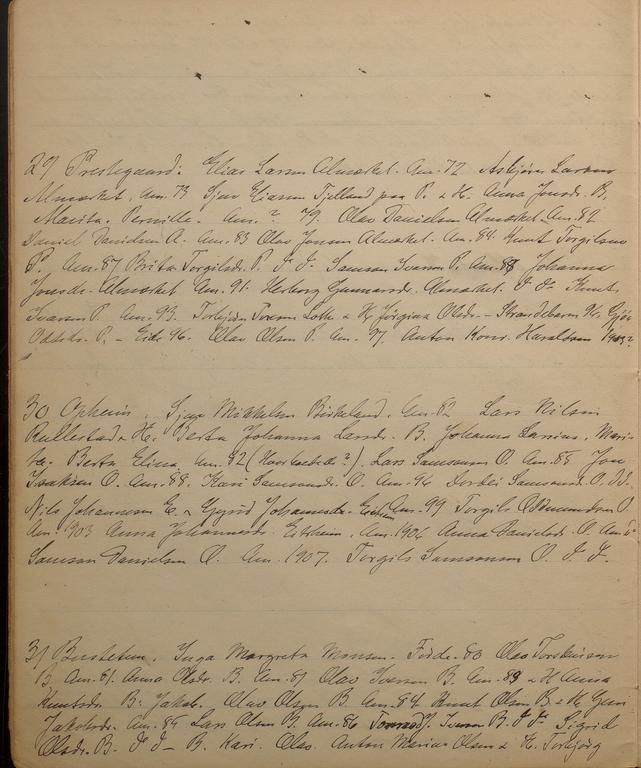 29 Prestegaard. Elias Larsen Almerket. Am. 72 Asbjørn Larsen
Almerket, Am. 73 Sjur Eliasen Tjelland paa P. & H. Anna Jonsd. B.
Marita. Pernille. Am. ? 79. Olav Danielsen Almerket. Am. 82
Daniel Danielsen A. Am. 83 Olav Jonsen Almerket. Am. 84. Knut Torgilsen
P. Am. 87 Brita Torgilsdr. P. I I. Samson Ivarsen P. Am. 88 Johanna
Jonsdr. Almerket Am. 91. Herborg Gunnarsdr. Almerket. I I. Knut
Ivarsen P. Am. 93. Torbjørn Lothe & H. Jørgina Olsdr. - Strandebarm 94.
Oddsdr. P. - 96. Olav Olsen P. Am. 97. Anton Konr. Haraldsen 1903?
30 Opheim. Sjur Mikkelsen Birkeland. Am. 82 Lars Nilsen
Rullestad & H. Berta Johanna Larsdr. B. Johanna Larsine, Mari-
ta. Berta Elina, Am. 82 (Hvor ?). Lars Samsonsen O. Am. 85 Jon
Isaksen O. Am. 88. Kari Samsonsdr. O. Am. 96 Dordei Samsonsd. O. I I.
Nils Johannesen E. & Sygni Johannesdr. Am. 99 Torgils Oddmundsen O.
Am. 1903 Anna Johannesdr. Eitheim, Am. 1906 Anna Danielsd. O. Am.
Samson Danielsen O. Am. 1907. Torgils Samsonsen O. I I.
31 Bustetun. Inga Margreta Monsen. Førde. 80 Olav Torsteinsen
B. Am. 81. Anna Olsdr. B. Am. 81 Olav Iversen B. Am. 89 & H. Anna
Knutsdr. B. Jakob. Olav Olsen B. Am. 84. Knut Olsen B. & H. Guri
Jakobsdr. Am. 85 Lars Olsen B. Am. 86 Iversen B. I I. Sigrid
Olsdr. B. I I - B. Kari. Olav. Anton Marius Olsen & H. Torbjørg